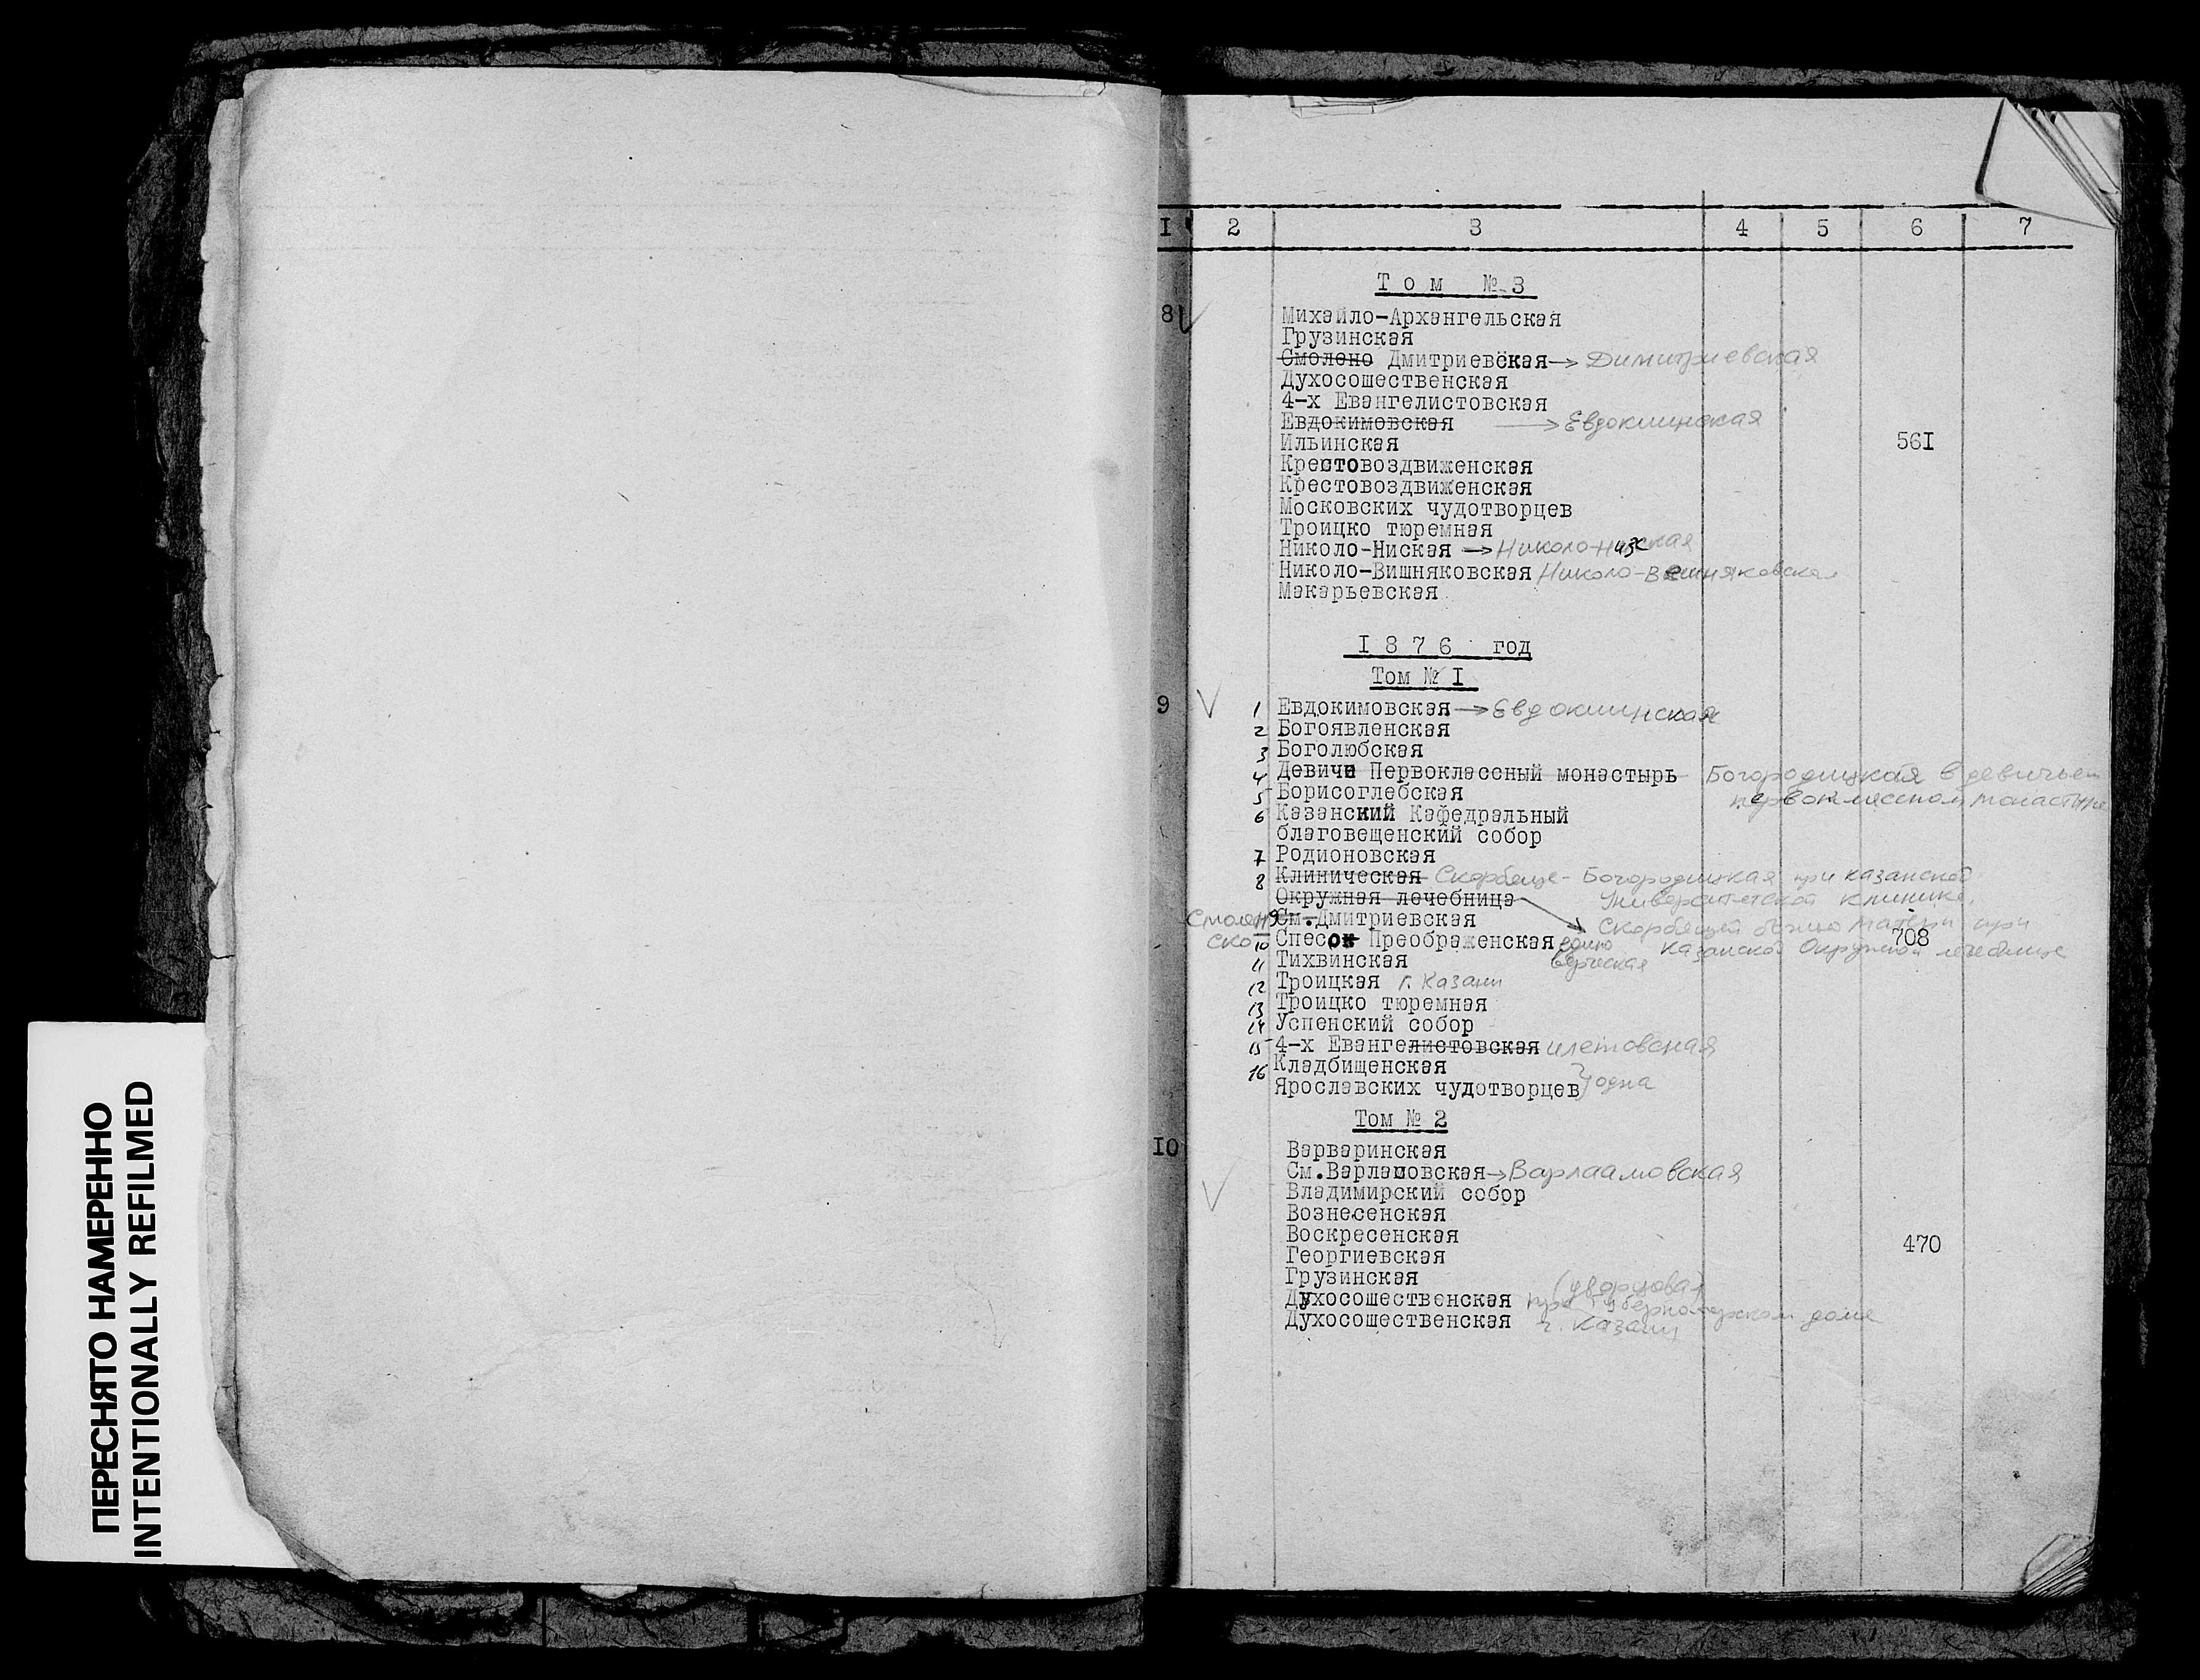 ПЕРЕСНЯТО НАМЕРЕННО
INTENTIONALLY REFILMED
I 2 3 4 5 6 7
Том № 3
8 Михайло-Архангельская
Грузинская
Смолено Дмитриевская → Димитриевская
Духосошественская
4-х Евангелистовская
Евдокимовская → Евдокиинская
Ильинская 56I
Крестовоздвиженская
Крестовоздвиженская
Московских чудотворцев
Троицко тюремная
Николо-Ниская → Николо-Низская
Николо-Вишняковская Николо-Вешняковская
Макарьевская
I876 год
Том № I
9 1 Евдокимовская → Евдокиинская
2 Богоявленская
3 Боголюбская
4 Девиче Первоклассный монастырь Богородицкая в девичьем
5 Борисоглебская первоклассном монастыре
6 Казанский Кафедральный
благовещенский собор
7 Родионовская
8 Клиническая Скорбяще-Богородицкая при казанской
Окружная лечебница Университетской клинике
Смолен 9 См.Дмитриевская Скорбящей божио Матери при
ско 10 Спесок Преображенская едино 708 Казанской Окружной лечебнице
11 Тихвинская верческая
12 Троицкая г. Казани
13 Троицко тюремная
14 Успенский собор
15 4-х Евангелистовская илетовская
16 Кладбищенская
Ярославских чудотворцев } одна
Том № 2
I0 Варваринская
См.Варламовская → Варлаамовская
Владимирский собор
Вознесенская
Воскресенская
Георгиевская 470
Грузинская (дворцовая)
Духосошественская при Губернаторском доме
Духосошественская г. Казани